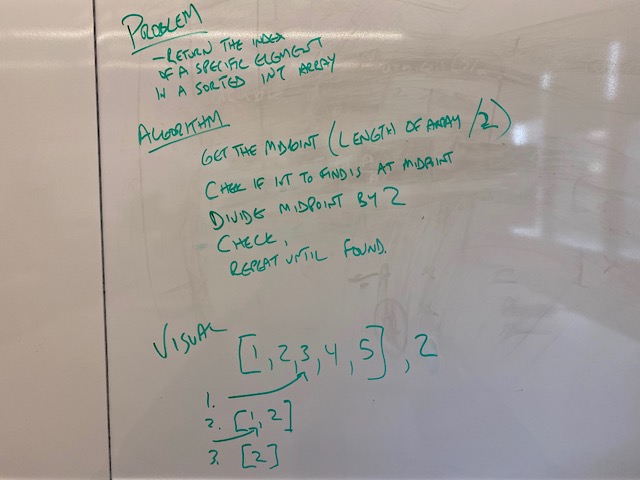 PROBLEM
- RETURN THE INDEX
OF A SPECIFIC ELEMENT
IN A SORTED INT ARRAY
ALGORITHM
GET THE MIDPOINT (LENGTH OF ARRAY /2)
CHECK IF INT TO FIND IS AT MIDPOINT
DIVIDE MIDPOINT BY 2
CHECK,
REPEAT UNTIL FOUND.
VISUAL
[1, 2, 3, 4, 5], 2
1.
2. [1, 2]
3. [2]